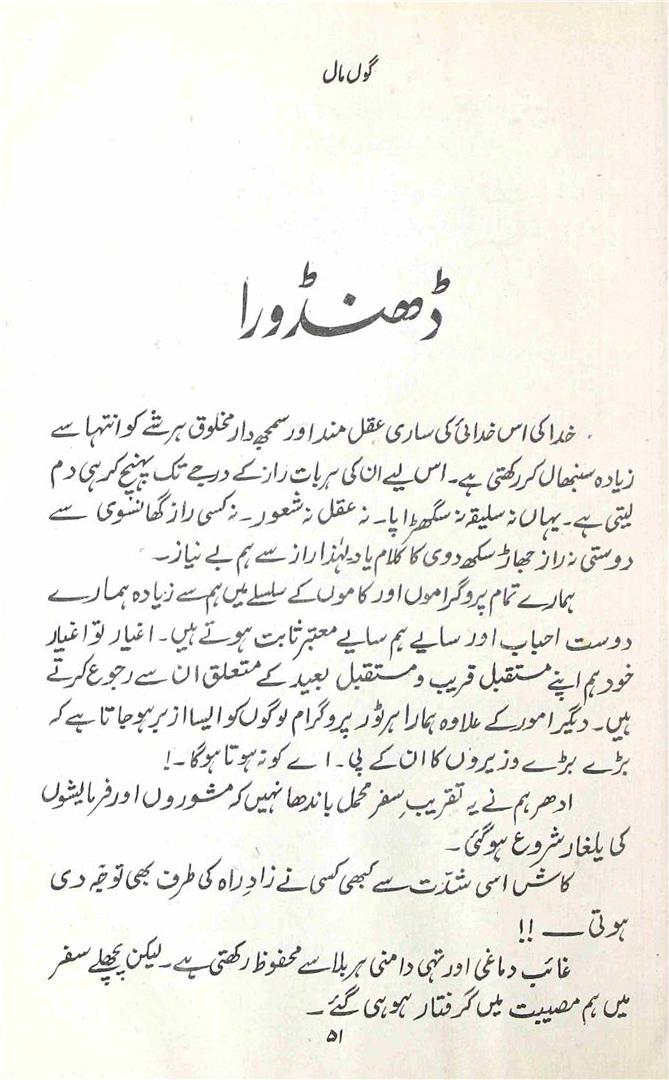 گول مال
ڈھنڈورا
خدا کی اس خدائی کی ساری عقل مند اور سمجھ دار مخلوق ہر شے کو انتہا سے
زیادہ سنبھال کر رکھتی ہے۔ اس لیے ان کی ہر بات راز کے درجے تک پہنچ کر ہی دم
لیتی ہے۔ یہاں نہ سلیقہ نہ سگھڑاپا۔ نہ عقل نہ شعور۔ نہ کسی راز گھانسوی سے
دوستی نہ راز جھاڑ سکھ دوی کا کلام یاد لہٰذا راز سے ہم بے نیاز۔
ہمارے تمام پروگراموں اور کاموں کے سلسلے میں ہم سے زیادہ ہمارے
دوست احباب اور سایے ہم سایے معتبر ثابت ہوتے ہیں۔ اغیار تو اغیار
خود ہم اپنے مستقبل قریب و مستقبل بعید کے متعلق ان سے رجوع کرتے
ہیں۔ دیگر امور کے علاوہ ہمارا ہر ٹور پروگرام لوگوں کو ایسا ازبر ہو جاتا ہے کہ
بڑے بڑے وزیروں کا ان کے پی۔ اے کو نہ ہوتا ہوگا۔!
ادھر ہم نے بہ تقریبِ سفر محمل باندھا نہیں کہ مشوروں اور فرمایشوں
کی یلغار شروع ہو گئی۔
کاش اسی شدّت سے کبھی کسی نے زادِ راہ کی طرف بھی توجّہ دی
ہوتی — !!
غائب دماغی اور تہی دامنی ہر بلا سے محفوظ رکھتی ہے۔ لیکن پچھلے سفر
میں ہم مصیبت میں گرفتار ہو ہی گئے۔
۵۱